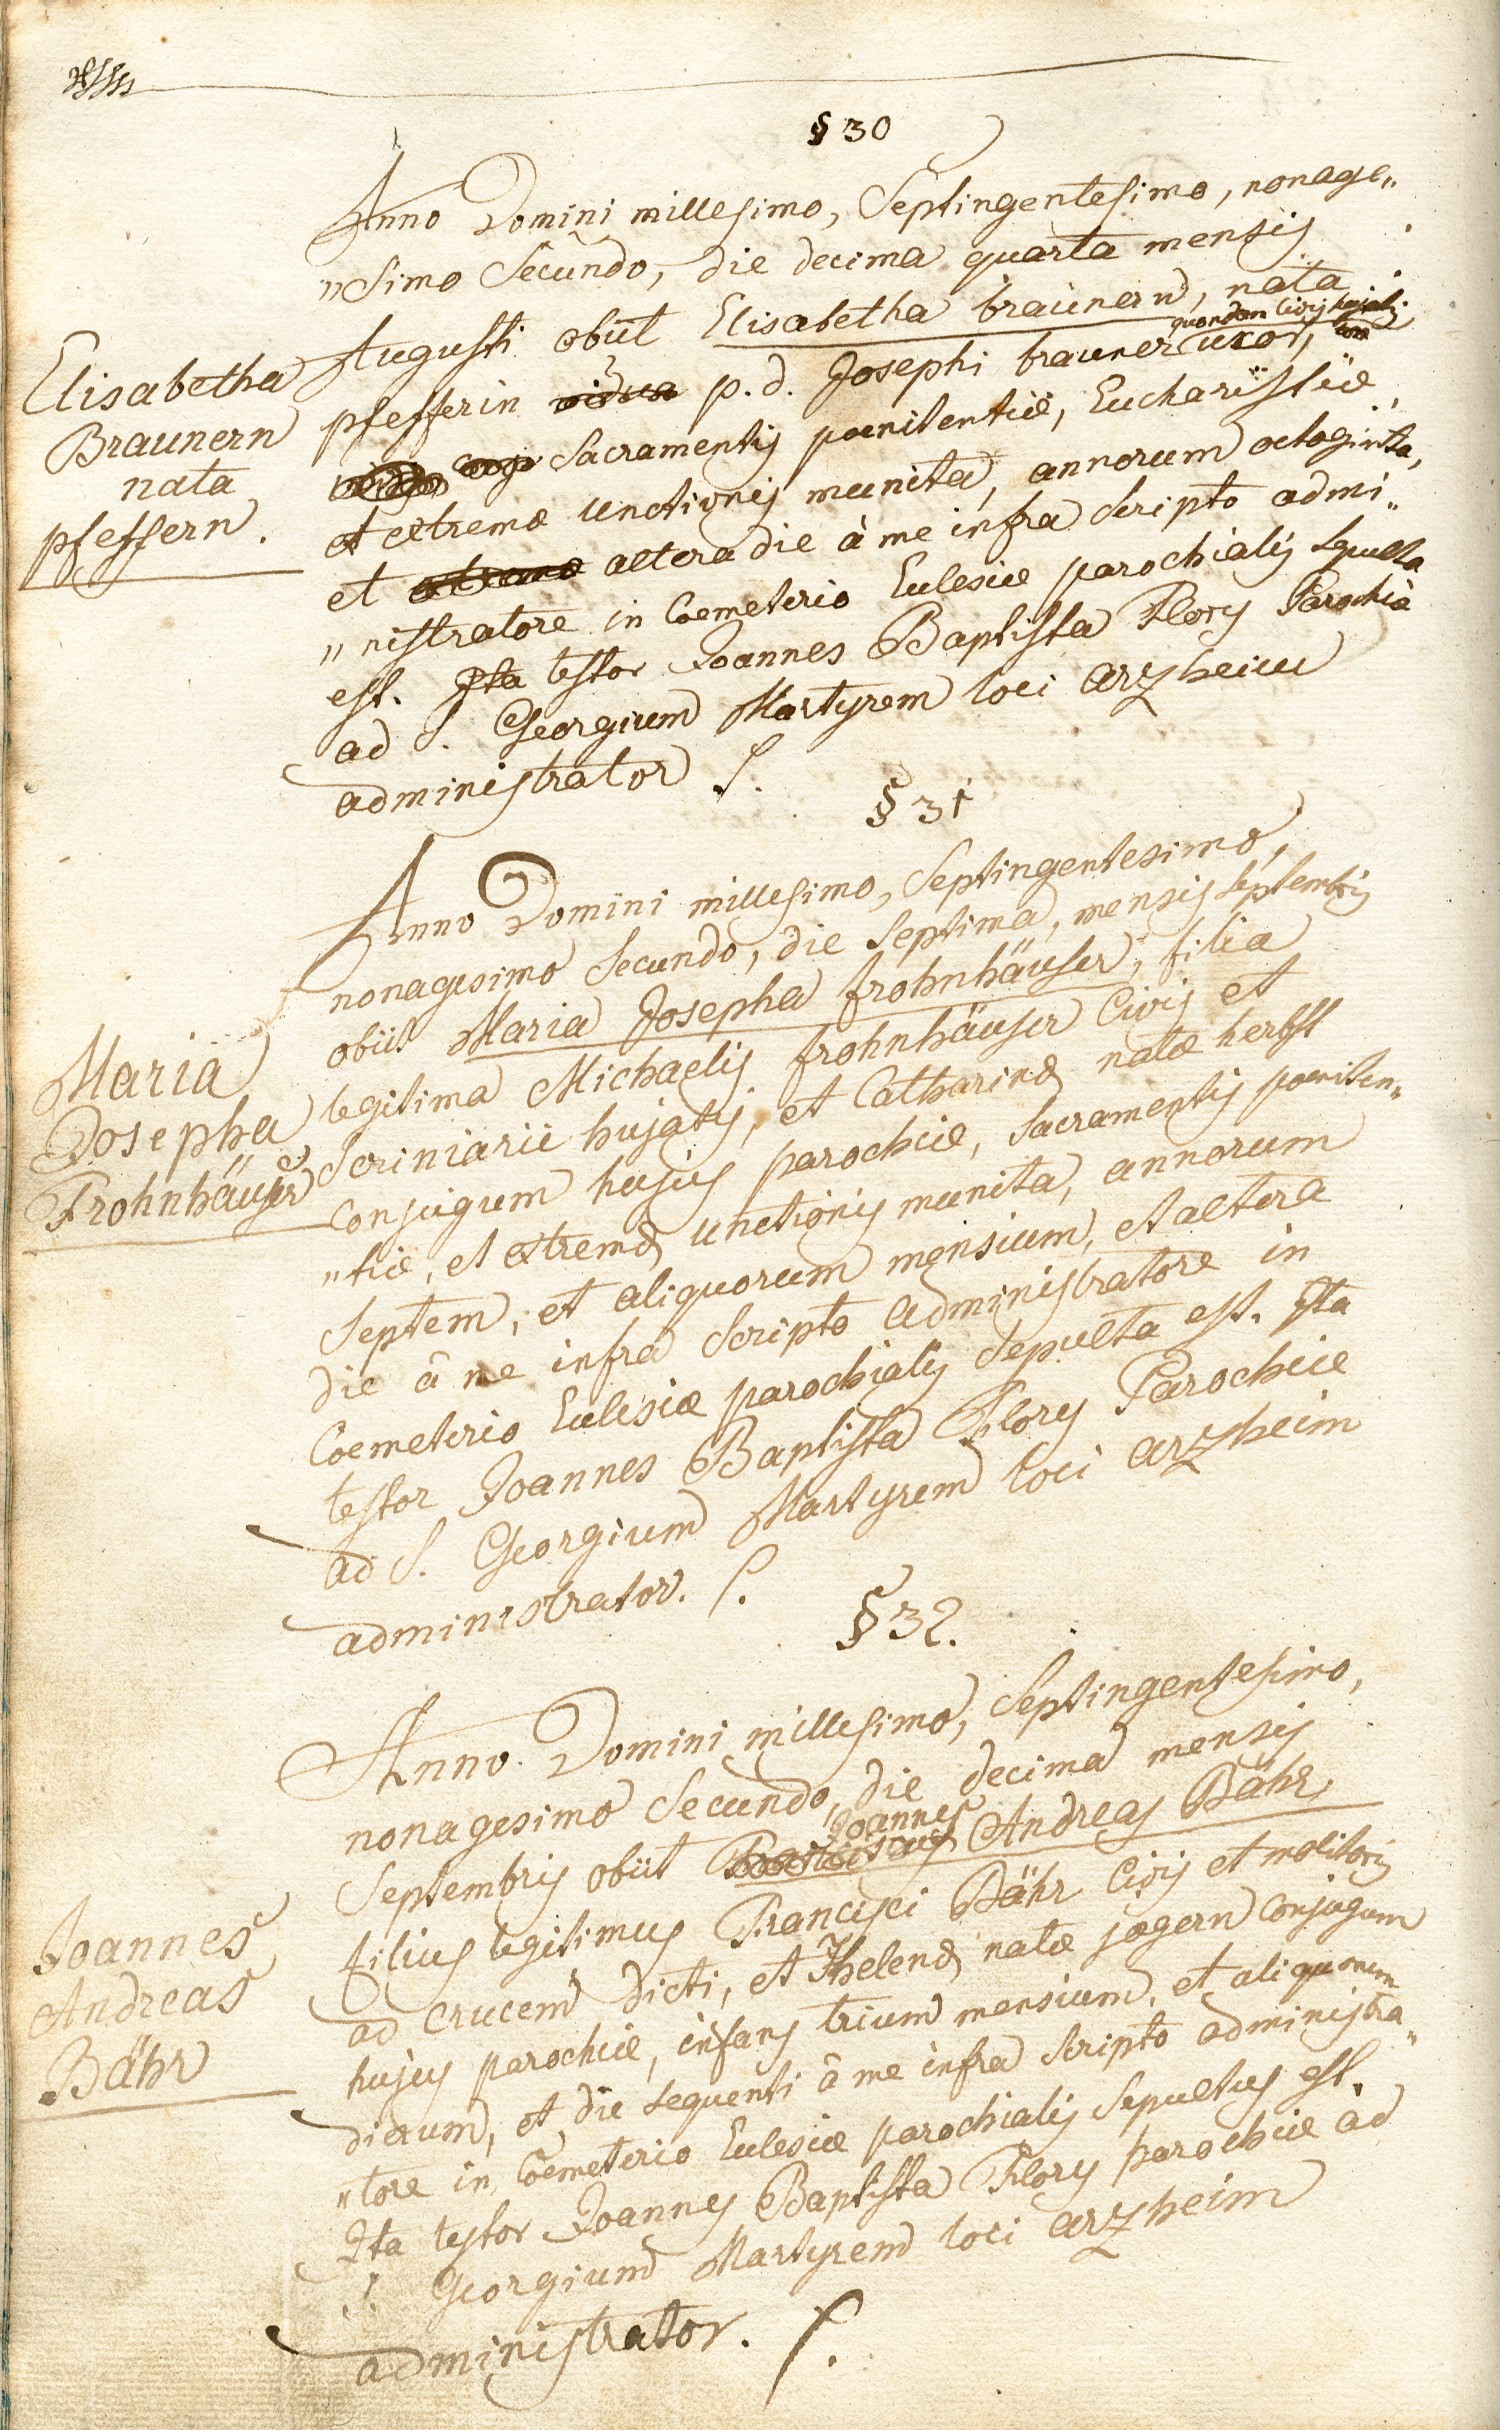 § 30
Anno Domini millesimo, Septingentesimo, nonage„
„simo Secundo, die decima quarta mensis
Augusti obiit Elisabetha braunern, nata
quondam Civis hujatis
pfefferin vidua p. d. Josephi brauner uxor,
Sacramentis poenitentiæ, Eucharistiæ,
et extremæ unctionis munita, annorum octoginta,
et altera die à me infra Scripto admi„
„nistratore in Coemeterio Eclesiæ parochialis Sepulta
est. Ita testor Joannes Baptista Flory Parochiæ
ad S. Georgium Martyrem loci arzheim
administrator S.
Elisabetha
Braunern
nata
pfeffern.
§ 31
Anno Domini millesimo, Septingentesimo,
nonagesimo Secundo, die Septima, mensis Septembris
obiit Maria Josepha frohnhäuser, filia
legitima Michaelis frohnhäuser Civis et
Scriniarii hujatis, et Catharinæ natæ herbst
Conjugum hujus parochiæ, Sacramentis poeniten„
„tiæ, et extremæ unctionis munita, annorum
Septem, et aliquorum mensium, et altera
die â me infra Scripto administratore in
Coemeterio Eclesiæ parochialis Sepulta est. Ita
testor Joannes Baptista Flory Parochiæ
ad S. Georgium Martyrem loci arzheim
administrator. S.
Maria
Josepha
Frohnhäuser
§ 32.
Anno Domini millesimo, Septingentesimo,
nonagesimo Secundo, die decima mensis
Joannes
Septembris obiit Franciscus Andreas Bähr,
filius legitimus Francisci Bähr Civis et molitoris
ad crucem dicti, et Helenæ natæ jagern Conjugum
hujus parochiæ, infans trium mensium, et aliquorum
dierum, et die sequenti â me infra Scripto administra„
„tore in Coemeterio Eclesiæ parochialis Sepultus est.
Ita testor Joannes Baptista Flory parochiæ ad
S. Georgium Martyrem loci arzheim
administrator. S.
Joannes
Andreas
Bähr